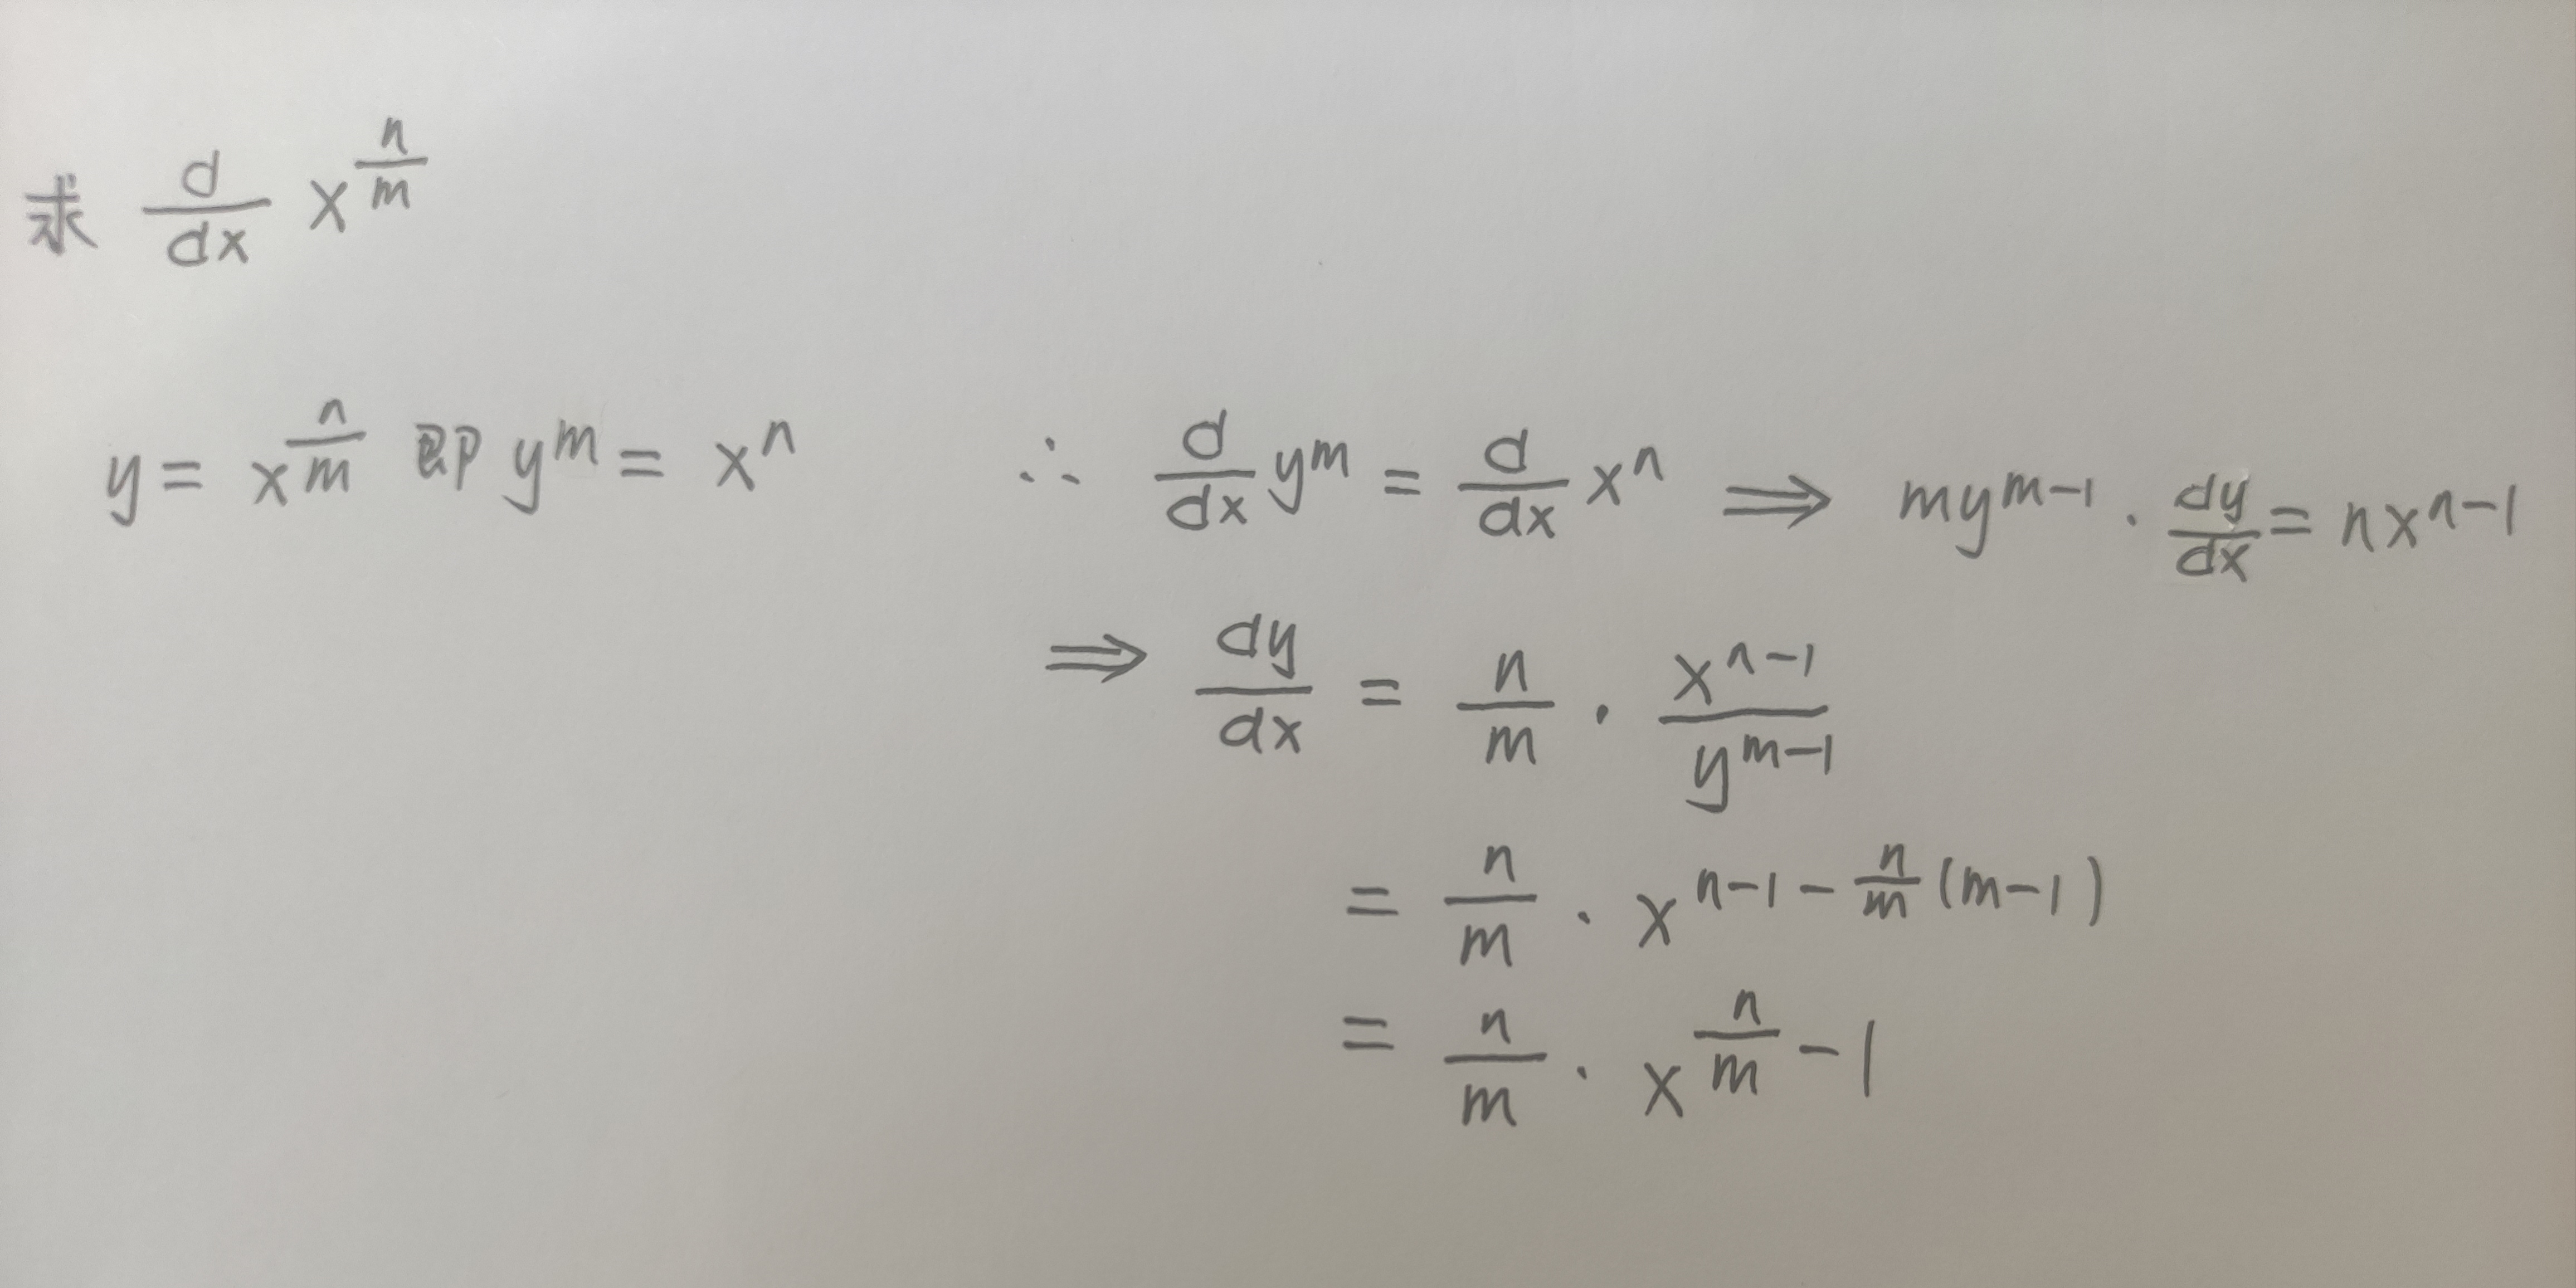 求 d/dx x^(n/m)
y = x^(n/m) 即 y^m = x^n ∴ d/dx y^m = d/dx x^n ⟹ my^(m-1) · dy/dx = nx^(n-1)
⟹ dy/dx = n/m · x^(n-1)/y^(m-1)
= n/m · x^(n-1-n/m(m-1))
= n/m · x^(n/m-1)